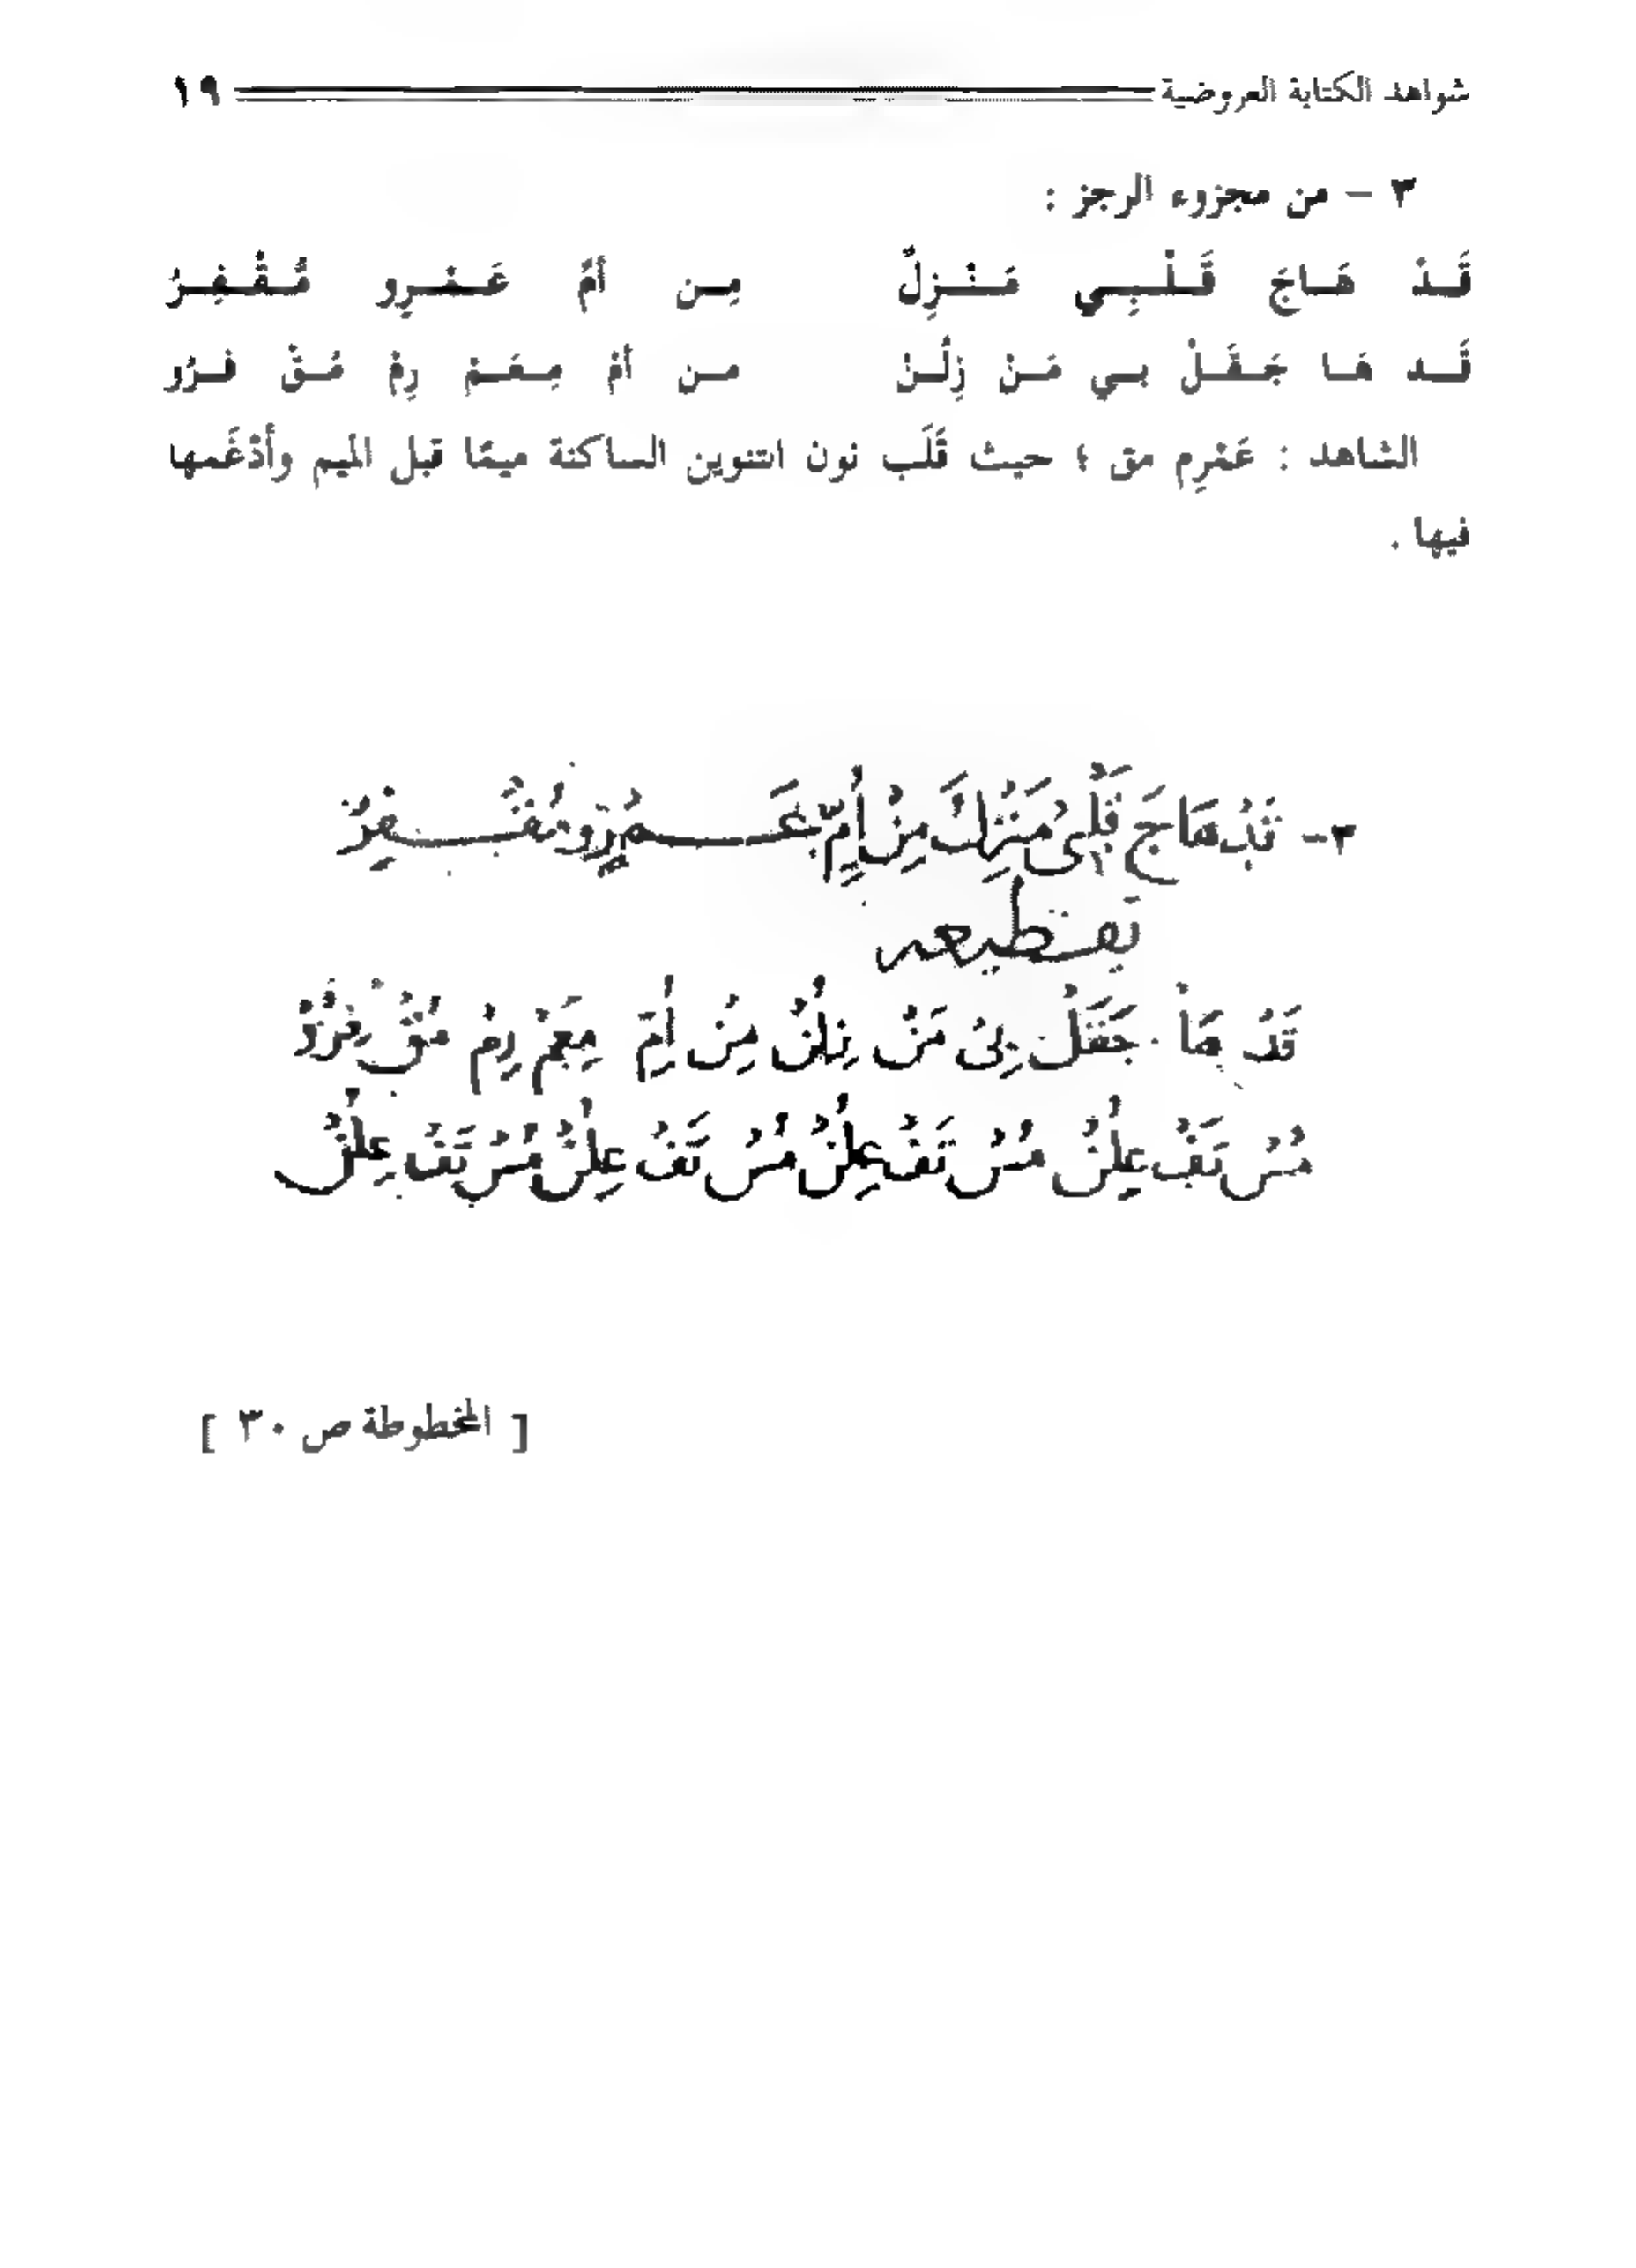 شواهد الكتابة العروضية ١٩
٣ – من مجزوء الرجز :
قَـدْ هَـاجَ قَـلْـبِـي مَـنْـزِلٌ مِـن أمِّ عَـمْـرِو مُـقْـفِـرُ
قَـد هَـا جَـقَـلْ بـي مَـنْ زِلُـنْ مـن أمْ مِـعَـمْ رِمْ مُـقْ فـرُو
الشاهد : عَمْرِم مق ؛ حيث قَلَب نون التنوين الساكنة ميمًا قبل الميم وأدْغَمها
فيها .
٣- قَدْ هَاجَ قَلْبِىْ مَنْزِلٌ مِنْ أُمِّ عَـــمْرٍو مُقْـــفِرُ
تقطيعه
قَدْ هَاْ جَقَلْ بِىْ مَنْ زِلُنْ مِنْ أُمْ مِعَمْ رِمْ مُقْ فِرُوْ
مُسْ تَفْ عِلُنْ مُسْ تَفْ عِلُنْ مُسْ تَفْ عِلُنْ مُسْ تَفْ عِلُنْ
[ المخطوطة ص ٣٠ ]